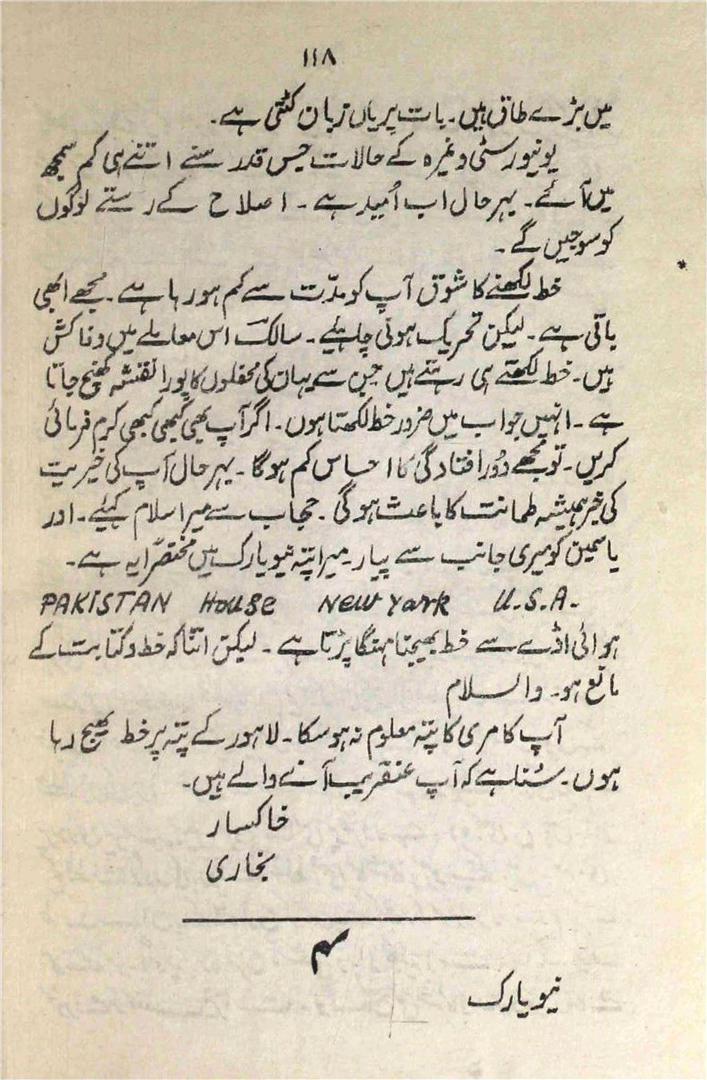 ۱۱۸
میں بڑے طاق ہیں۔ بات پر یاں زبان کٹتی ہے۔
یونیورسٹی وغیرہ کے حالات جس قدر سنے اتنے ہی کم سمجھ
میں آئے۔ بہر حال اب اُمید ہے۔ اصلاح کے رستے لوگوں
کو سوجیں گے۔
خط لکھنے کا شوق آپ کو مدّت سے کم ہو رہا ہے۔ مجھے ابھی
باقی ہے۔ لیکن تحریک ہونی چاہیئے۔ سالک اس معاملے میں وفا کش
ہیں۔ خط لکھتے ہی رہتے ہیں جن سے یہاں کی محفلوں کا پورا نقشہ کھنچ جاتا
ہے۔ انہیں جواب میں ضرور خط لکھتا ہوں۔ اگر آپ بھی کبھی کبھی کرم فرمائی
کریں۔ تو مجھے دُور افتادگی کا احساس کم ہو گا۔ بہر حال آپ کی خیریت
کی خبر ہمیشہ طمانت کا باعث ہو گی۔ حجاب سے میرا سلام کہئیے۔ اور
یاسمین کو میری جانب سے پیار۔ میرا پتہ نیو یارک میں مختصراً یہ ہے۔
PAKISTAN House New York U.S.A.
ہوائی اڈے سے خط بھیجنا مہنگا پڑتا ہے۔ لیکن اتنا کہ خط و کتابت کے
مانع ہو۔ والسلام
آپ کا مری کا پتہ معلوم نہ ہو سکا۔ لاہور کے پتہ پر خط بھیج رہا
ہوں۔ سُنا ہے کہ آپ عنقریب آنے والے ہیں۔
خاکسار
بخاری
نیو یارک